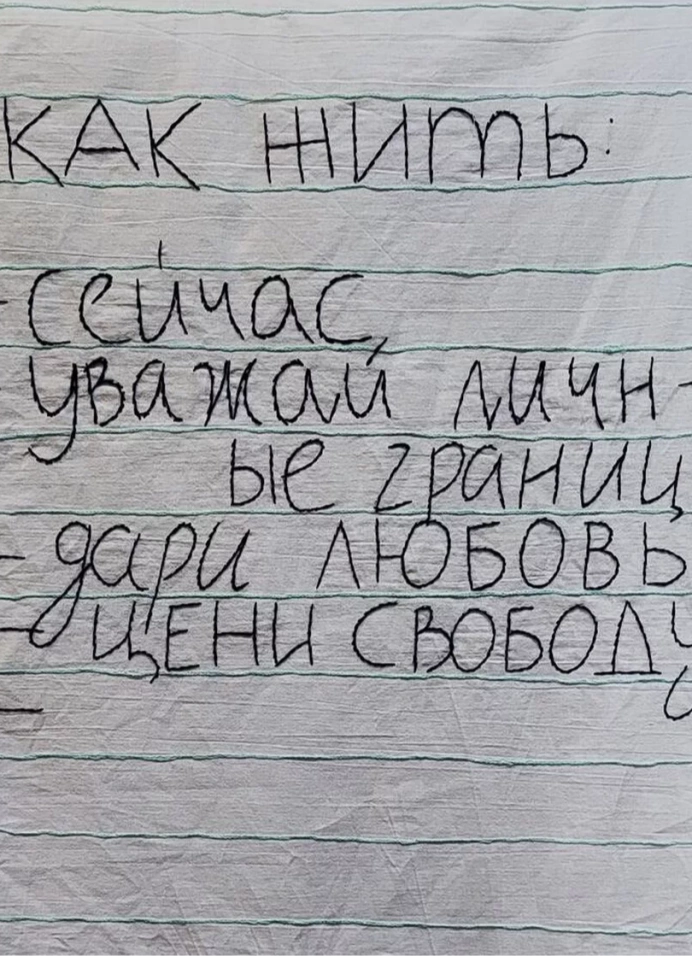 КАК ЖИТЬ:
-сейчас,
-уважай личн-
ые границ
-дари ЛЮБОВЬ
-ЦЕНИ СВОБОДУ
-